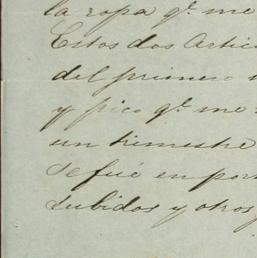 la ropa qe. me
Estos dos Artic
del primero
y pico qe. me
un trimestre
se fué en por
subidos y otros